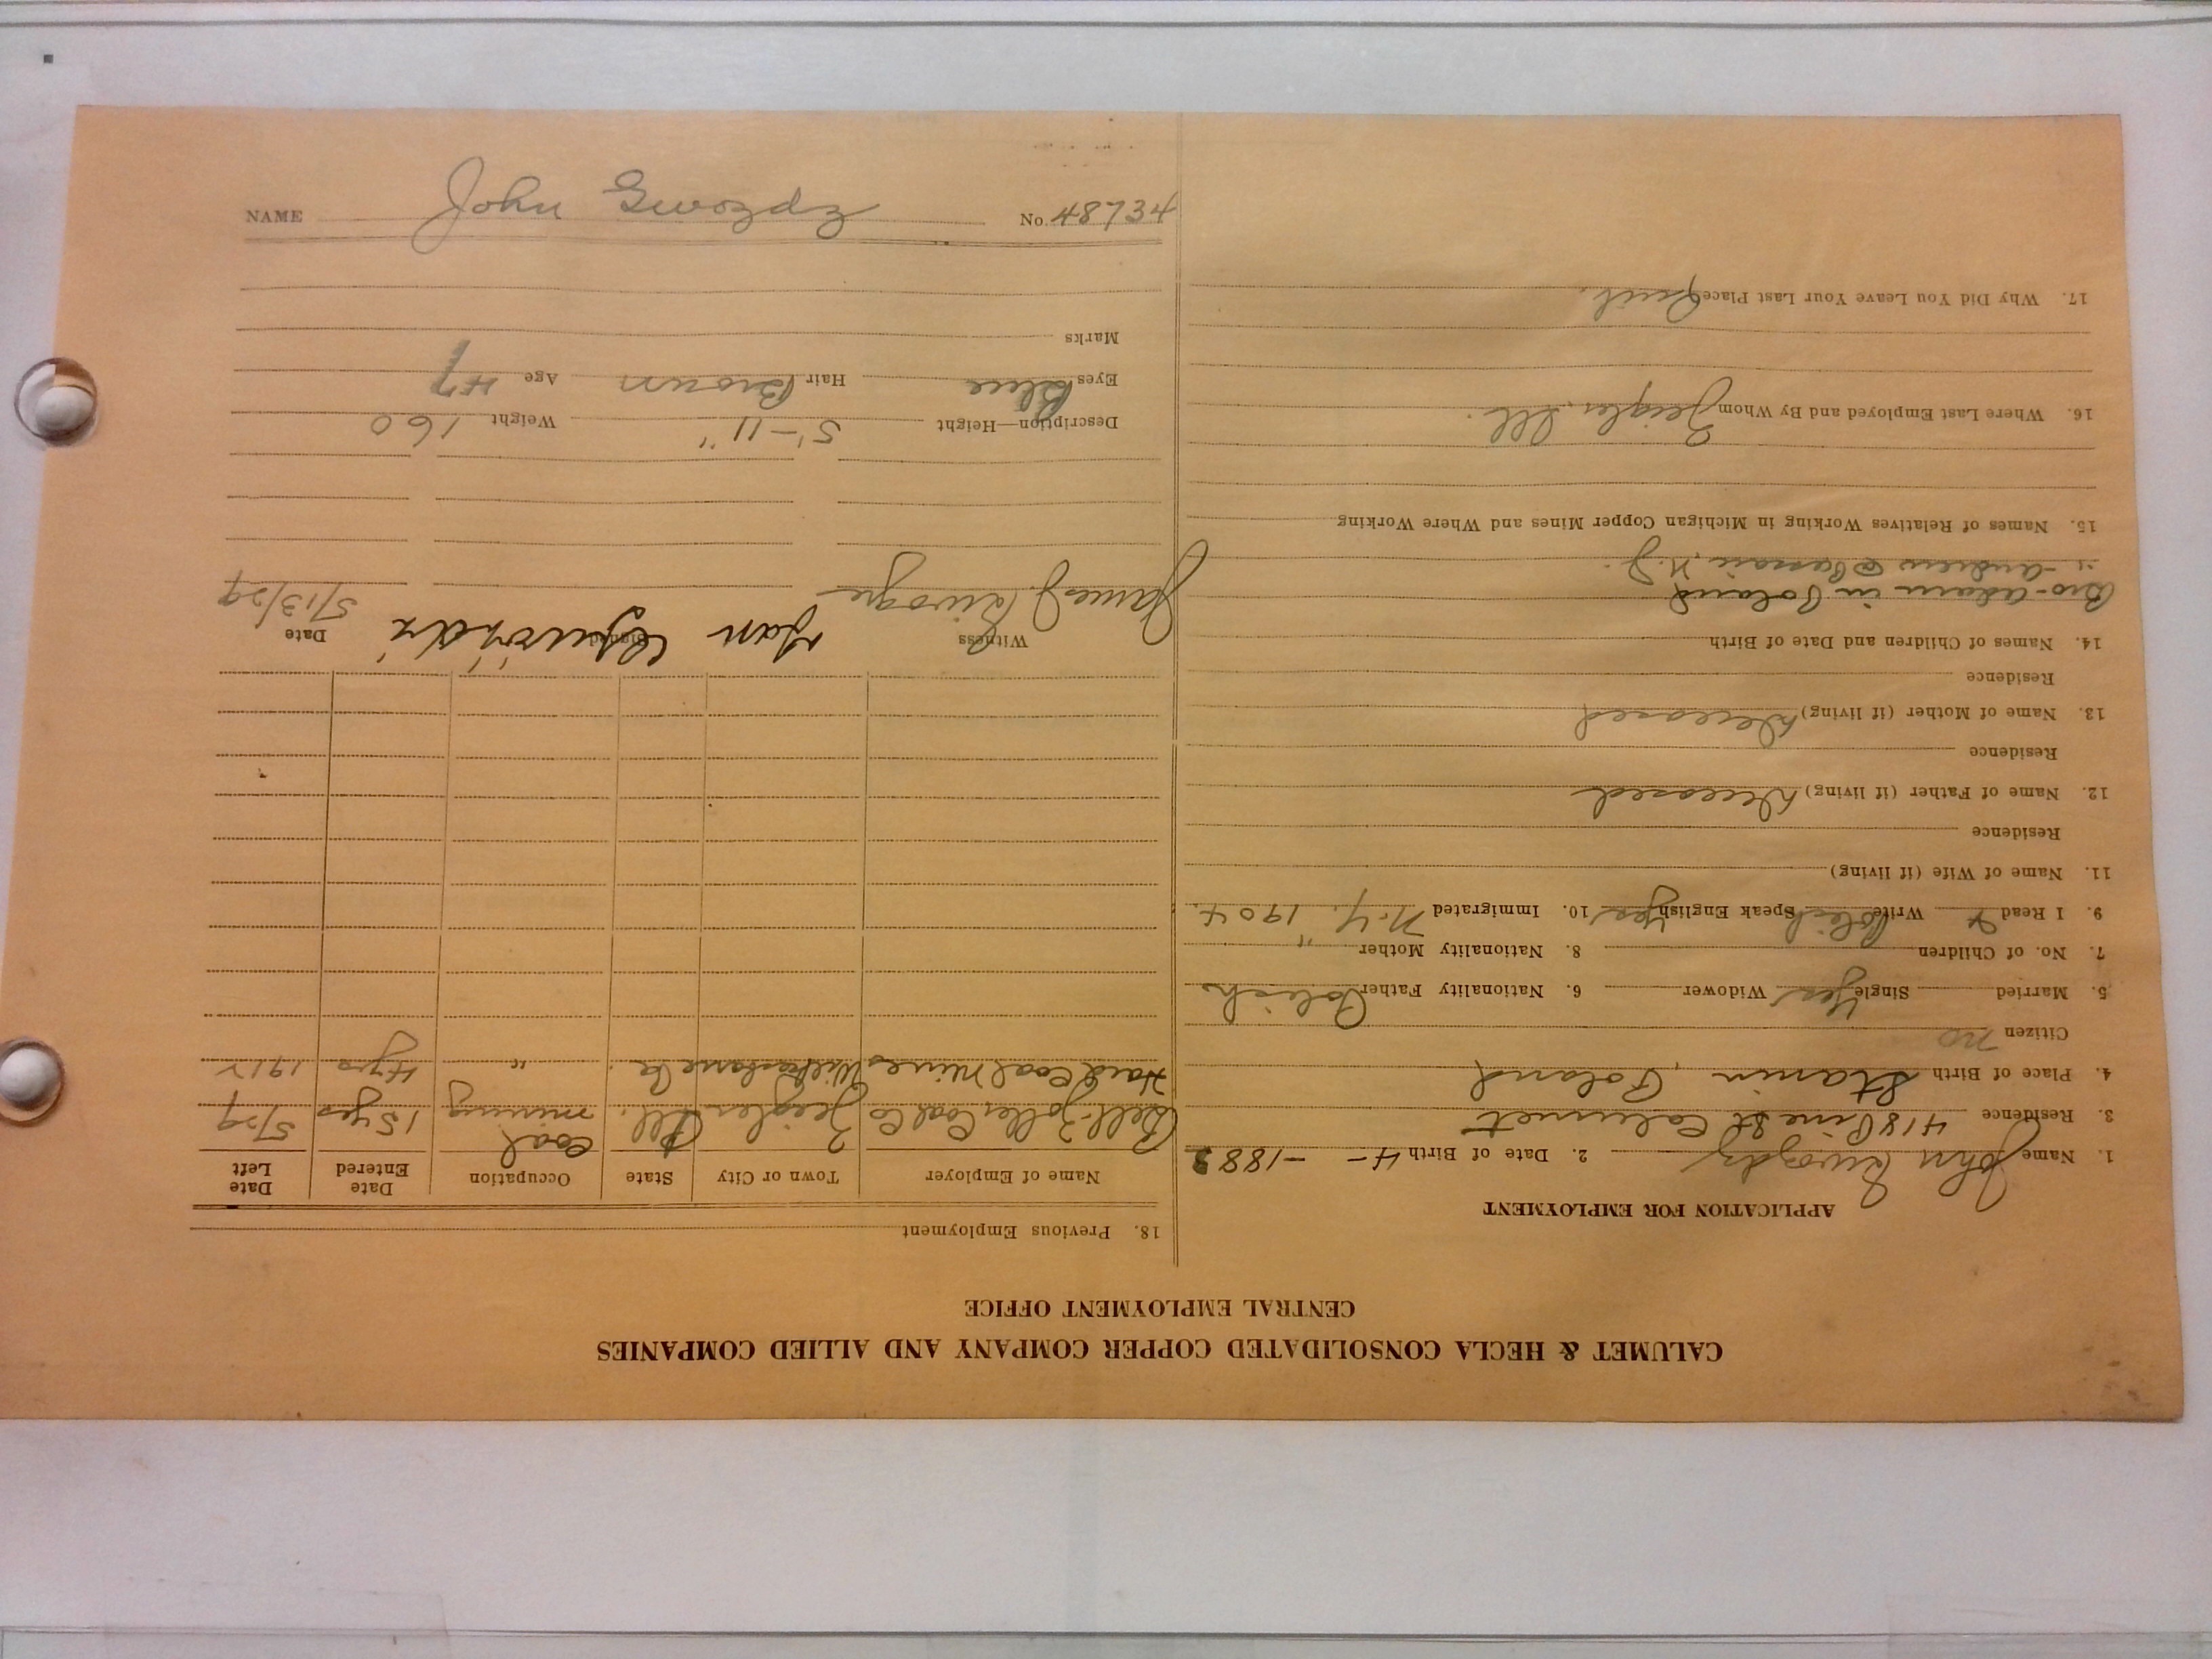 CALUMET & HECLA CONSOLIDATED COPPER COMPANY AND ALLIED COMPANIES
CENTRAL EMPLOYMENT OFFICE
APPLICATION FOR EMPLOYMENT
1. Name John Gwozdz 2. Date of Birth 4- -1882
3. Residence 418 Pine St Calumet
4. Place of Birth Stanin, Poland
Citizen no
5. Married Single Yes Widower 6. Nationality Father Polish
7. No. of Children 8. Nationality Mother "
9. I Read & Write Polish Speak English Yes 10. Immigrated N.Y. 1904.
11. Name of Wife (if living)
Residence
12. Name of Father (if living) Deceased
Residence
13. Name of Mother (if living) Deceased
Residence
14. Names of Children and Date of Birth
Bro- Adam in Poland
" - Andrew @ N.J.
15. Names of Relatives Working in Michigan Copper Mines and Where Working
16. Where Last Employed and By Whom Zeigler, Ill.
17. Why Did You Leave Your Last Place Quit.
18. Previous Employment
Name of Employer Town or City State Occupation Date Entered Date Left
Bell-Zoller Coal Co Zeigler Ill. Coal mining 15 yrs 5/29
Hard Coal Mines Wilkesbarre Pa. " 4 yrs 1912
Witness Signed Date
James J. Jan Gwoźdź 5/13/29
Description—Height 5'-11" Weight 160
Eyes Blue Hair Brown Age 47
Marks
NAME John Gwozdz No. 48734